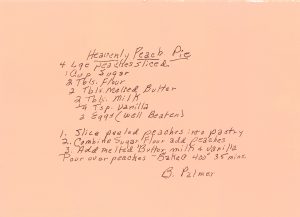 Heavenly Peach Pie
4 Lge peaches sliced
1 Cup Sugar
2 Tbls. Flour
2 Tbls Melted Butter
2 Tbls. Milk
¼ Tsp. Vanilla
2 Eggs (Well Beaten)
1. Slice peeled peaches into pastry
2. Combine Sugar Flour add peaches
3. Add melted Butter, milk & vanilla
Pour over peaches - Bake 400° 35 mins.
B. Palmer